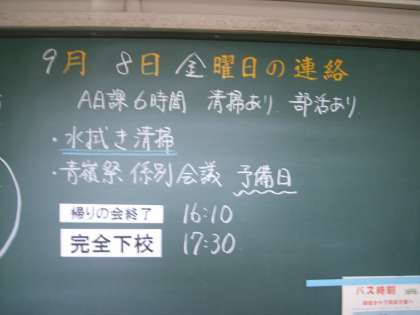 9月 8日 金曜日の連絡
A日課6時間 清掃あり 部活あり
・水拭き清掃
・青嶺祭 係別会議 予備日
帰りの会終了 16:10
完全下校 17:30
バス時刻